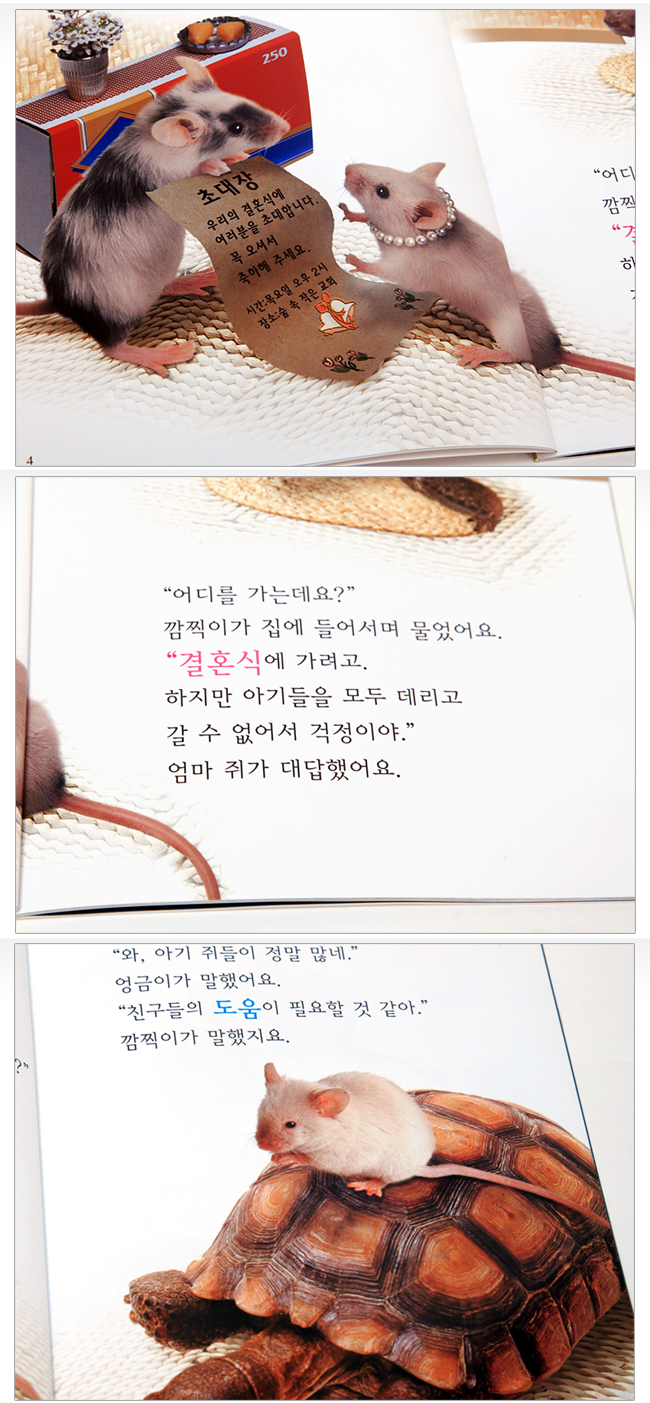 250
초대장
우리의 결혼식에
여러분을 초대합니다.
꼭 오셔서
축하해 주세요.
시간:목요일 오후 2시
장소:숲 속 작은 교회
“어디
깜찍
“결
하
4
“어디를 가는데요?”
깜찍이가 집에 들어서며 물었어요.
“결혼식에 가려고.
하지만 아기들을 모두 데리고
갈 수 없어서 걱정이야.”
엄마 쥐가 대답했어요.
“와, 아기 쥐들이 정말 많네.”
엉금이가 말했어요.
“친구들의 도움이 필요할 것 같아.”
깜찍이가 말했지요.
?”